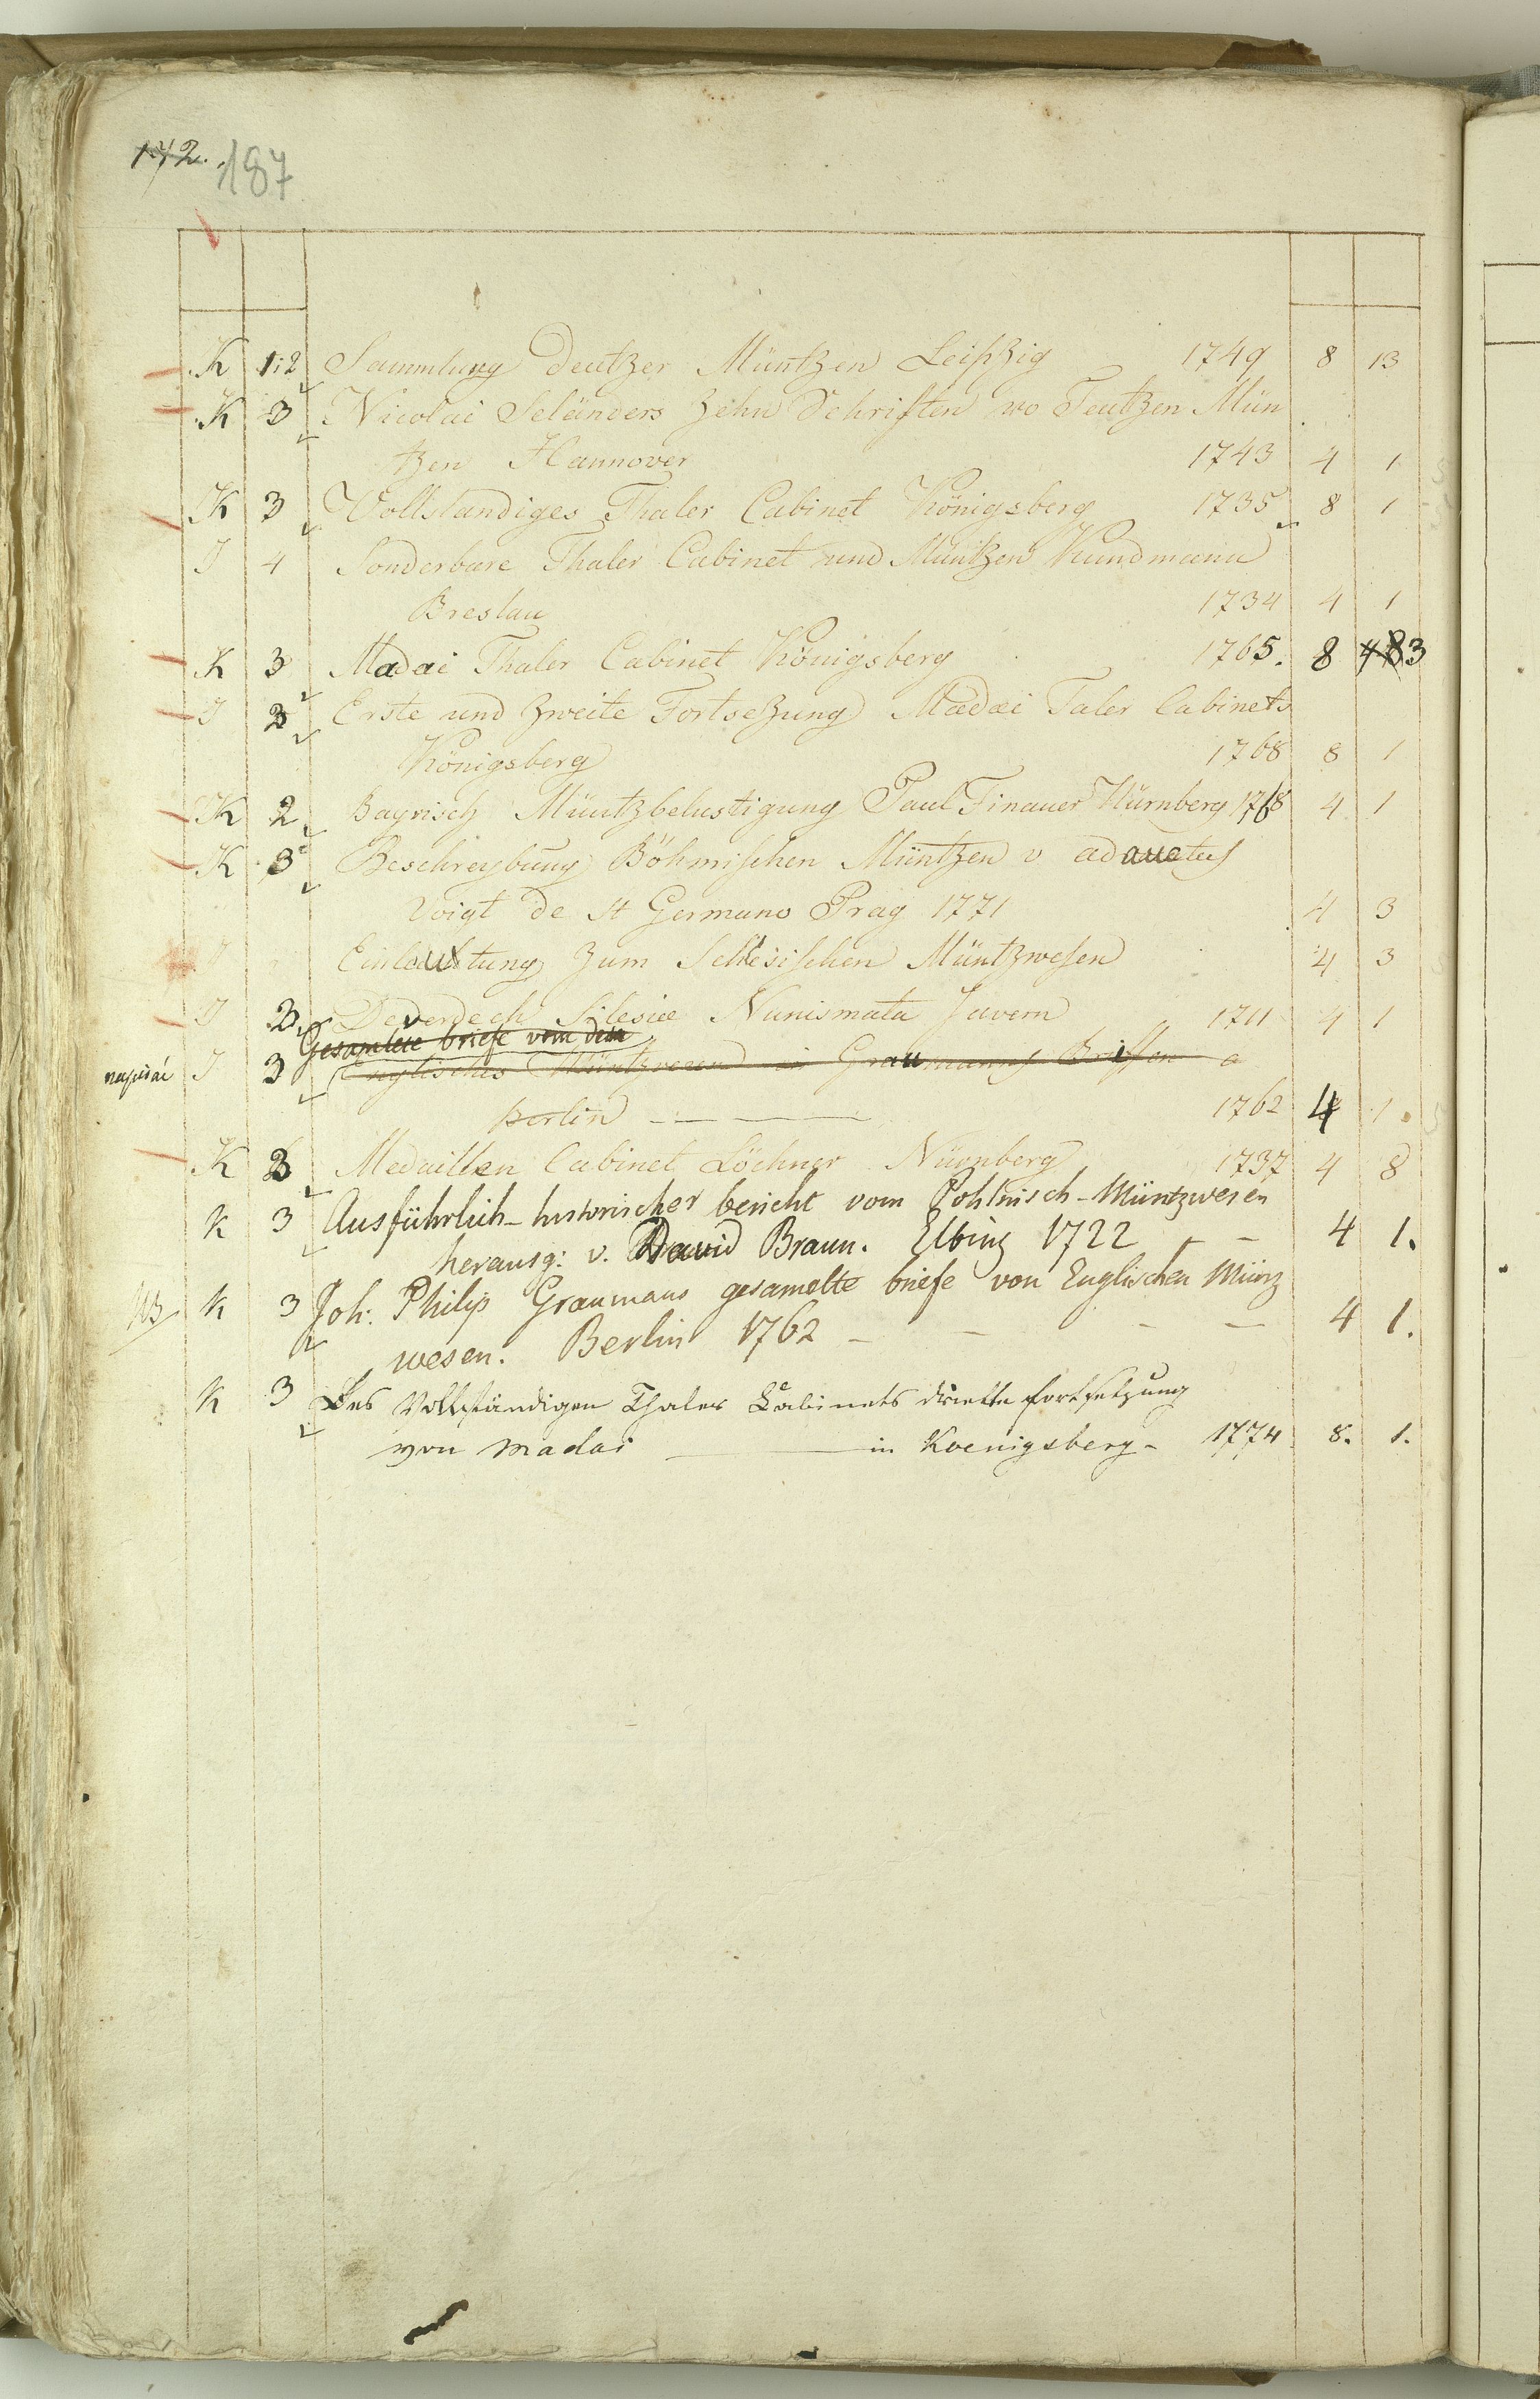 172. 187
K 1.2 Sammlung Deutzer Müntzen Leipzig 1749 8 13
K 3 Nicolai Seländers Zehn Schriften vo Teutzen Mün
tzen Hannover 1743 4 1
K 3 Vollstandiges Thaler Cabinet Königsberg 1735 8 1
J 4 Sonderbare Thaler Cabinet und Müntzen Kundmann
Breslau 1734 4 1
K 3 Madai Thaler Cabinet Königsberg 1765. 8 3
J 3 Erste und Zweite Fortsezung Madai Taler Cabinets
Königsberg 1768 8 1
K 2 Bayrisch Müntzbelustigung Paul Finauer Nürnberg 1768 4 1
K 3 Beschreybung Böhmischen Müntzen v adauctus
Voigt de St Germano Prag 1771 4 3
J Einleutung Zum Schlesischen Müntzwesen 4 3
J 3 Deverdech Silesiæ Numismata Javern 1711 4 1
Gesamlete briefe vom dem
J 3 Englisches Müntzwesend in Graumanns Briffen a
Berlin 1762 4 1.
K 3 Medaillen Cabinet Löchner Nürnberg 1737 4 8
K 3 Ausführlich-historischer bericht vom Pohlnisch-Müntzwesen
herausg: v. David Braun. Elbing 1722 - - 4 1.
NB K 3 Joh: Philip Graumans gesamelte briefe von Englischen Münz
wesen. Berlin 1762 - - - - 4 1.
K 3 Des Vollständigen Thaler Cabinets driette fortsetzung
von Madai in Koenigsberg- 1774 8. 1.